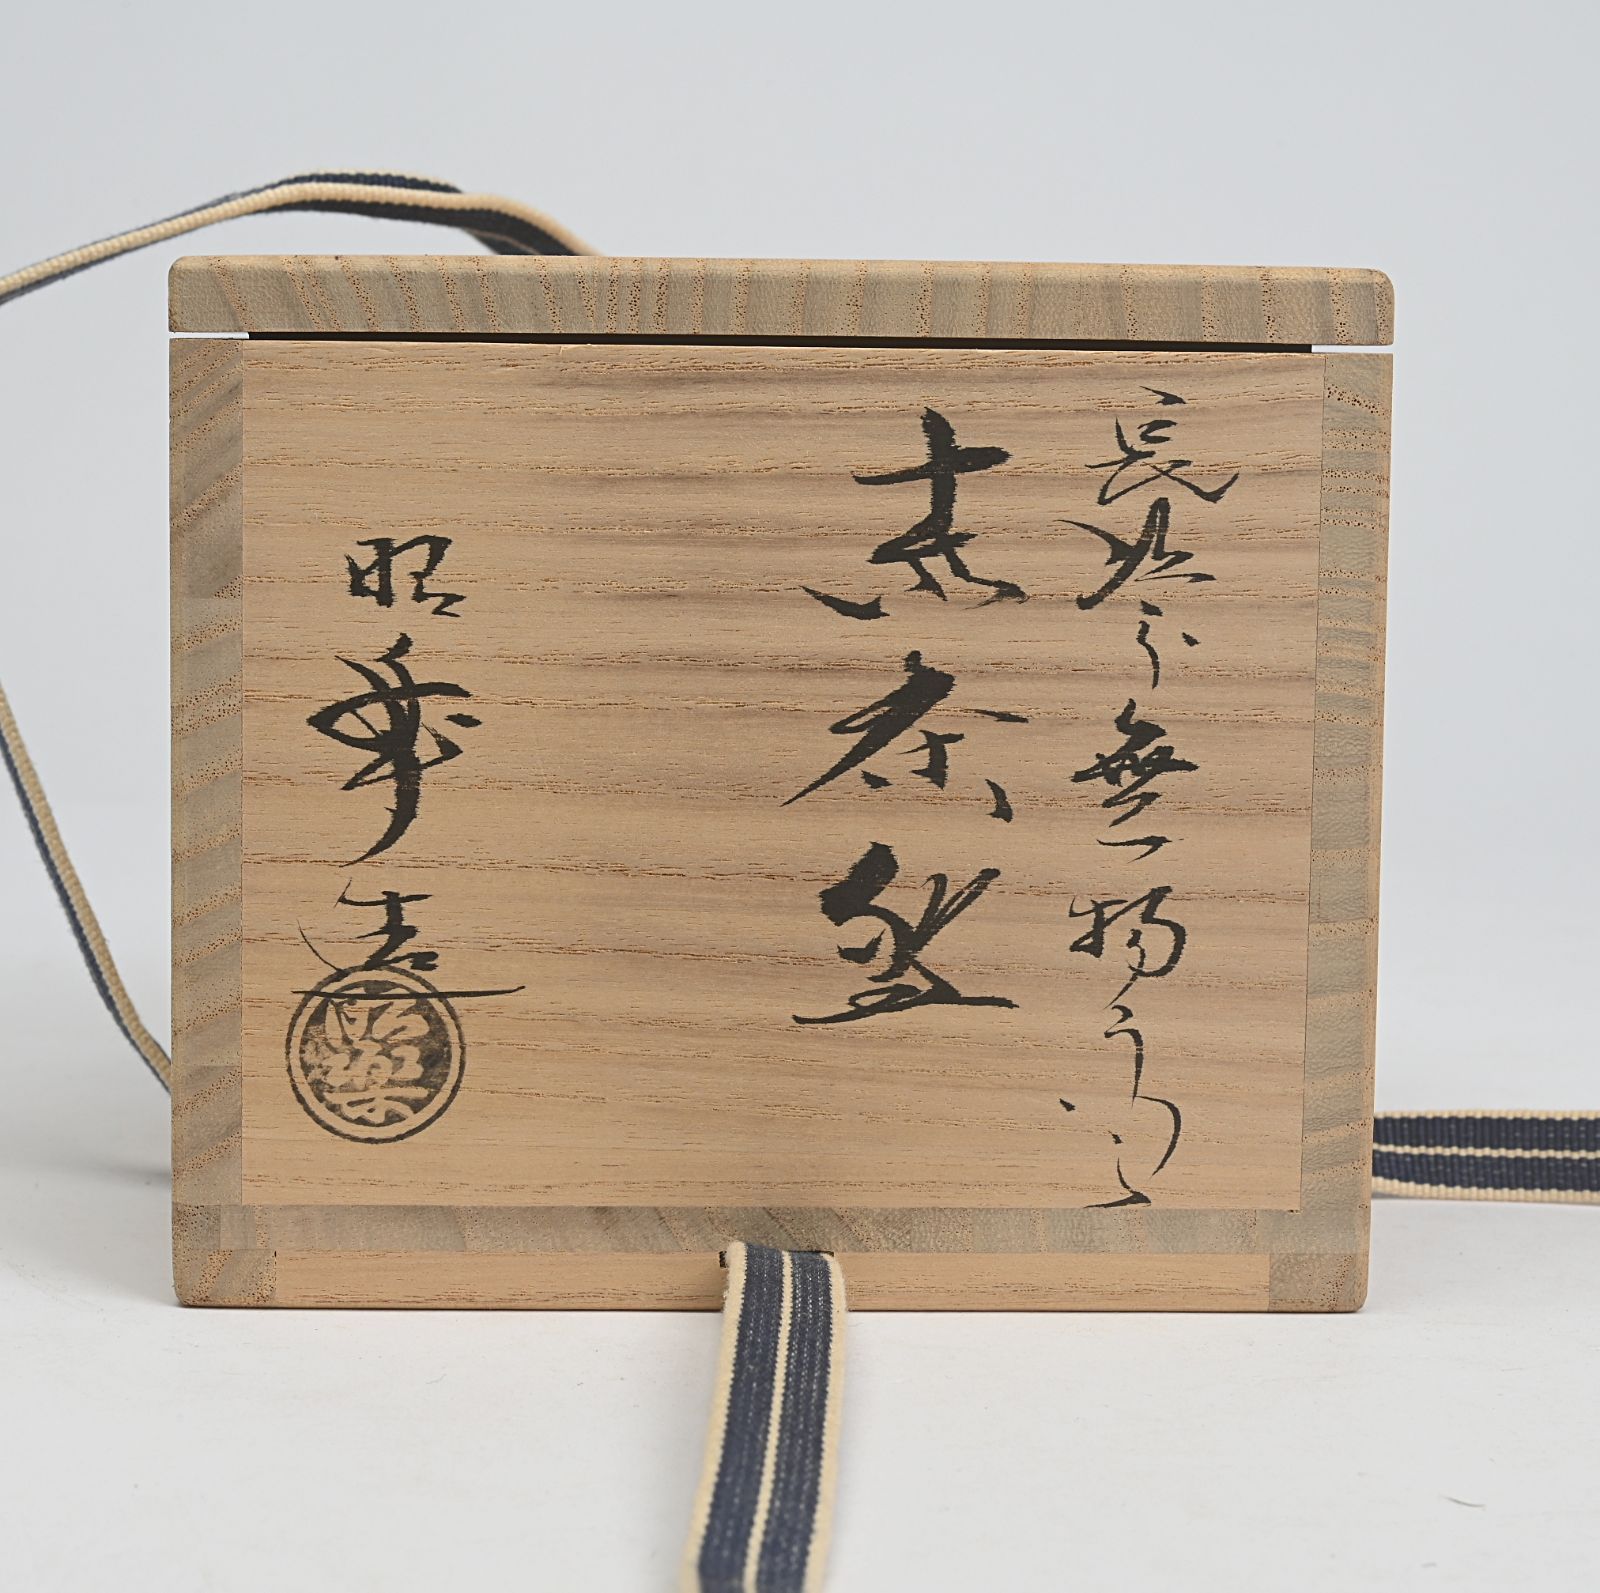 長次郎無一物うつし
赤茶盌
昭楽造